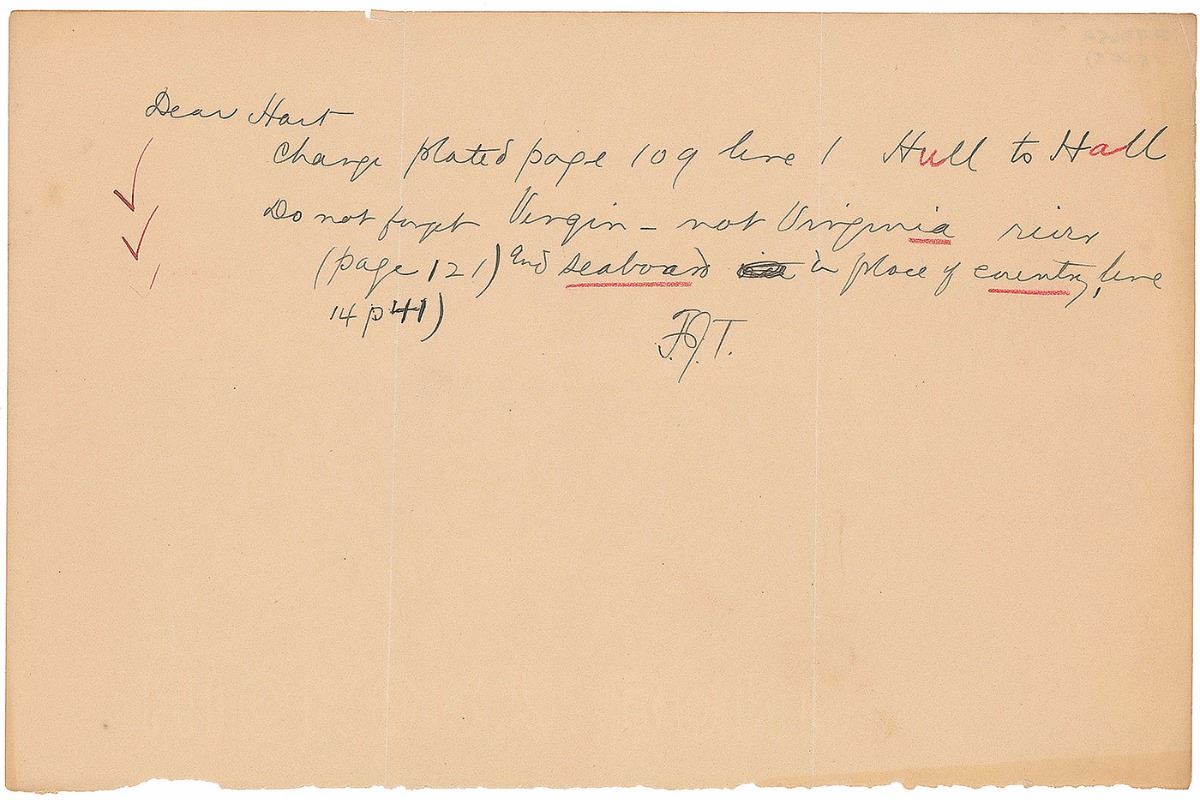 Dear Hart
Change plated page 109 line 1 Hull to Hall
Do not forget Virgin – not Virginia river
(page 121) and seaboard in place of country, line
14 p 41)
F.J.T.